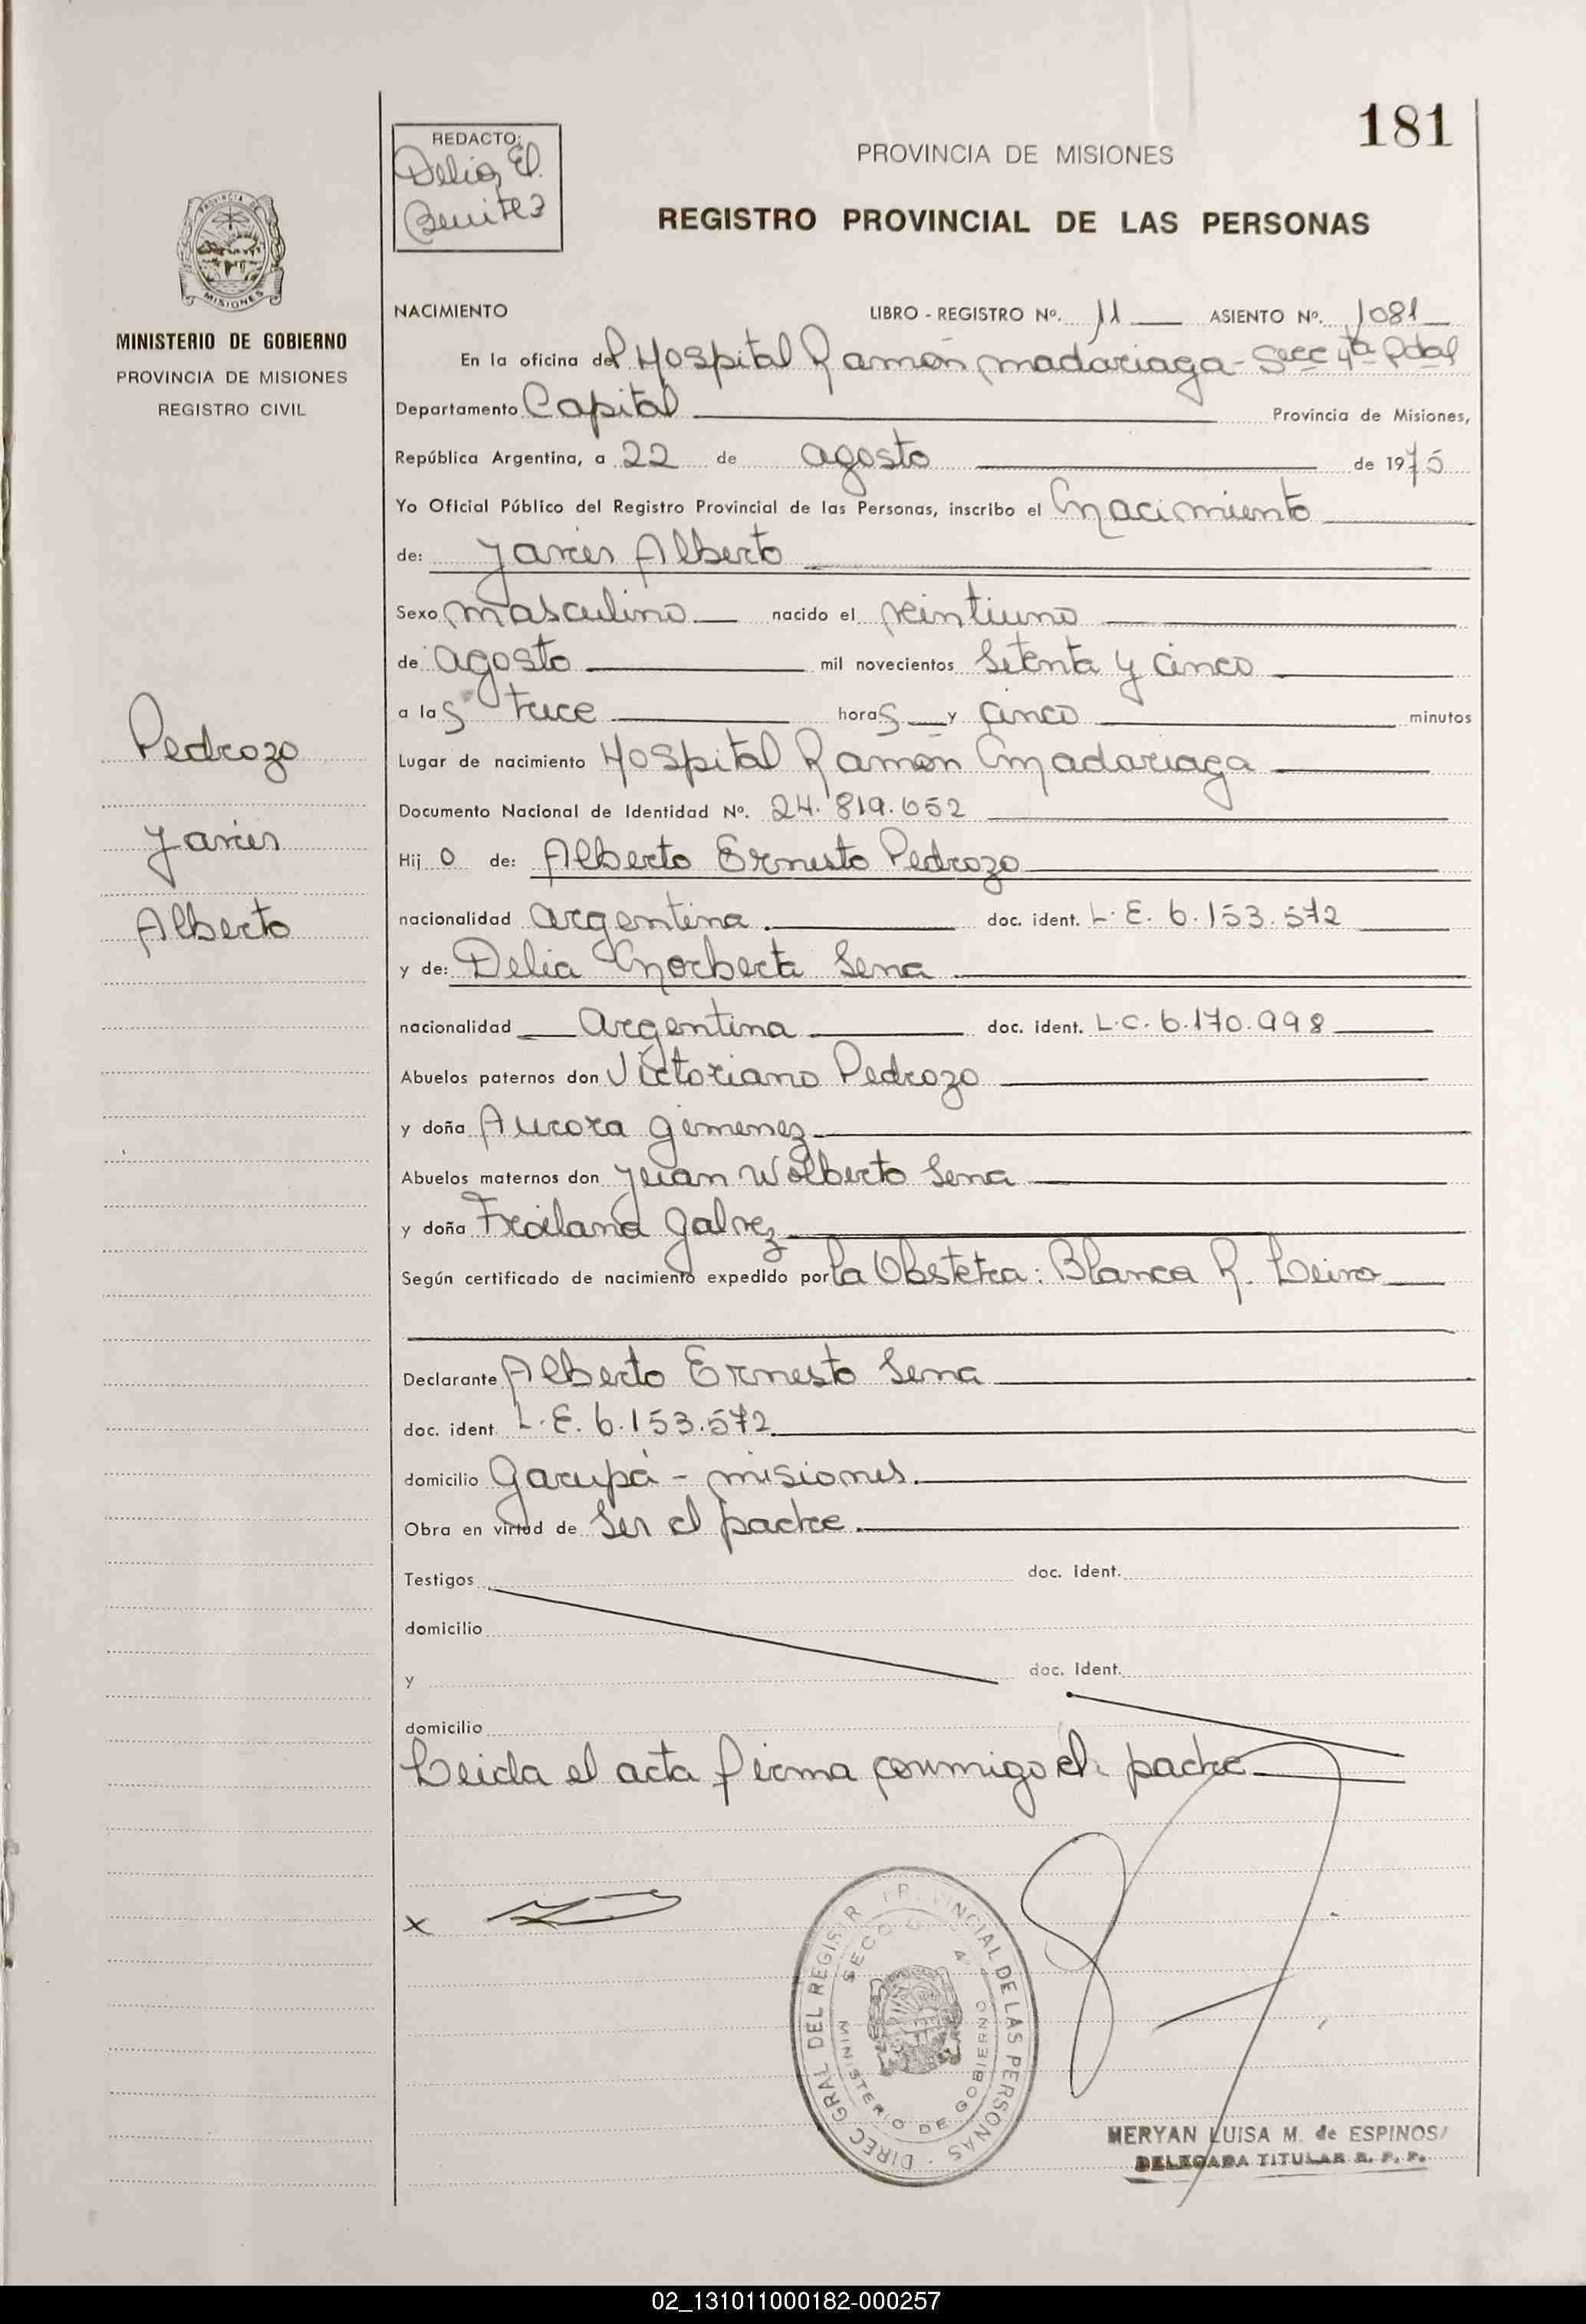 181
REDACTO:
Delia El.
Benitez
PROVINCIA DE MISIONES
REGISTRO PROVINCIAL DE LAS PERSONAS
PROVINCIA DE
MISIONES
MINISTERIO DE GOBIERNO
PROVINCIA DE MISIONES
REGISTRO CIVIL
Pedrozo
Javier
Alberto
NACIMIENTO LIBRO - REGISTRO Nº. 11 ASIENTO Nº. 1081
En la oficina del Hospital Ramón Madariaga - Secc 4ta Pdas
Departamento Capital Provincia de Misiones,
República Argentina, a 22 de agosto de 1975
Yo Oficial Público del Registro Provincial de las Personas, inscribo el Nacimiento
de: Javier Alberto
Sexo masculino nacido el veintiuno
de agosto mil novecientos setenta y cinco
a las trece horas y cinco minutos
Lugar de nacimiento Hospital Ramón Madariaga
Documento Nacional de Identidad Nº. 24.819.652
Hij o de: Alberto Ernesto Pedrozo
nacionalidad argentina. doc. ident. L.E. 6.153.572
y de: Delia Norberta Sena
nacionalidad Argentina doc. ident. L.C. 6.170.998
Abuelos paternos don Victoriano Pedrozo
y doña Aurora Gimenez
Abuelos maternos don Juan Wolberto Sena
y doña Froilana Galvez
Según certificado de nacimiento expedido por la Obstetra: Blanca R. Leiva
Declarante Alberto Ernesto Sena
doc. ident. L.E. 6.153.572
domicilio Garupá - misiones.
Obra en virtud de ser el padre.
Testigos doc. ident.
domicilio
y doc. ident.
domicilio
Leida el acta firma conmigo el padre
x
DIREC GRAL DEL REGISTR PROVINCIAL DE LAS PERSONAS
SECC 4ª
MINISTERIO DE GOBIERNO
MERYAN LUISA M. de ESPINOS
DELEGADA TITULAR R. P. P.
02_131011000182-000257